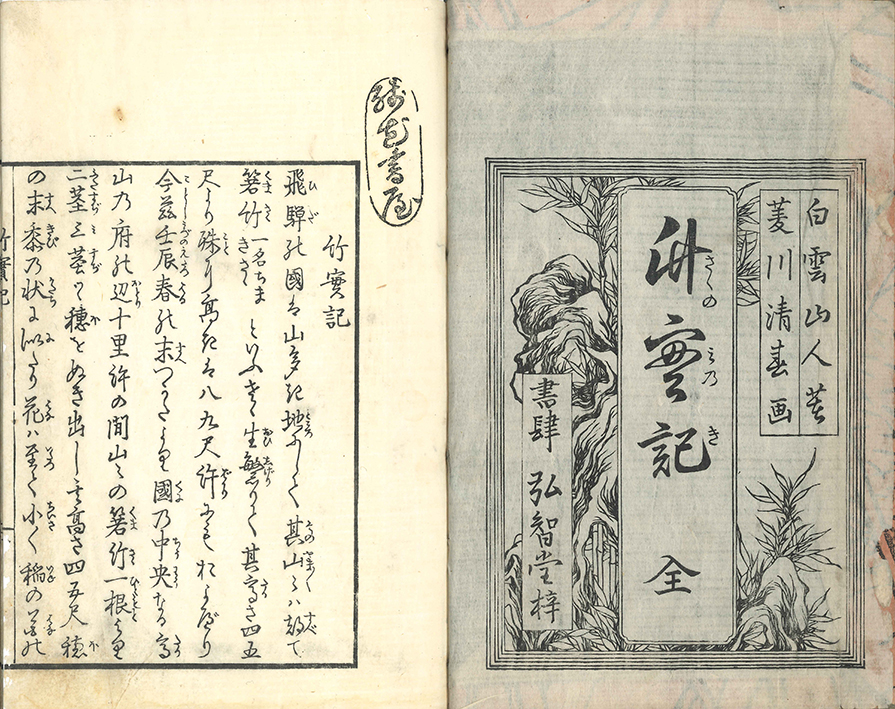 白雲山人著
菱川清春画
竹實記 全
さゝの みの き
書肆 弘智堂梓
竹實記
飛驒の國は山多き地にして其山々ハ都て
箬竹一名ちまきささといふもの生繁りて其高さ四五
尺より殊に高きは八九尺許にもおよべり
今茲壬辰春の末つかたより國乃中央なる高
山乃府の辺十里許の間山々の箬竹一根より
二莖三莖つゝ穂をぬき出し其高さ四五尺穂
の末黍乃状に似たり花ハ至て小く稲の花の
竹實記